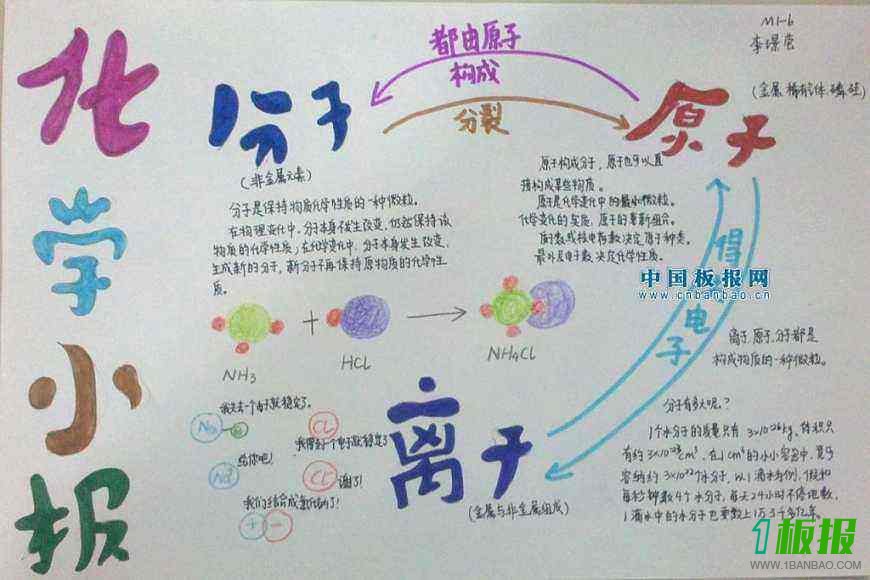 化
学
小
报
M1-6
都由原子
构成
分裂
分子
(非金属元素)
分子是保持物质化学性质的一种微粒。
在物理变化中,分子本身不发生改变,仍然保持该
物质的化学性质;在化学变化中,分子本身发生改变,
生成新的分子,新分子不再保持原物质的化学性
质。
原子
(金属、稀有气体、磷、硅)
原子构成分子,原子也可以直
接构成某些物质。
原子是化学变化中的最小微粒。
化学变化的实质:原子的重新组合。
质子数或核电荷数决定原子种类。
最外层电子数决定化学性质。
得失电子
中国板报网
www.cnbanbao.cn
NH3
+
HCL
NH4CL
离子、原子、分子都是
构成物质的一种微粒。
我失去一个电子就稳定了。
Na
Cl
我得到一个电子就稳定了
给你吧!
Na
Cl
谢了!
我们结合成氯化钠了!
+ -
离子
(金属与非金属组成)
分子有多大呢?
1个水分子的质量只有3×10-26kg,体积只
有约3×10-23cm³,在1cm³的小小容器中,竟可
容纳约3×1022个水分子,以1滴水为例,假如
每秒钟数4个水分子,每天24小时不停地数,
1滴水中的水分子也要数上1万3千多亿年。
1板报
WWW.1BANBAO.COM